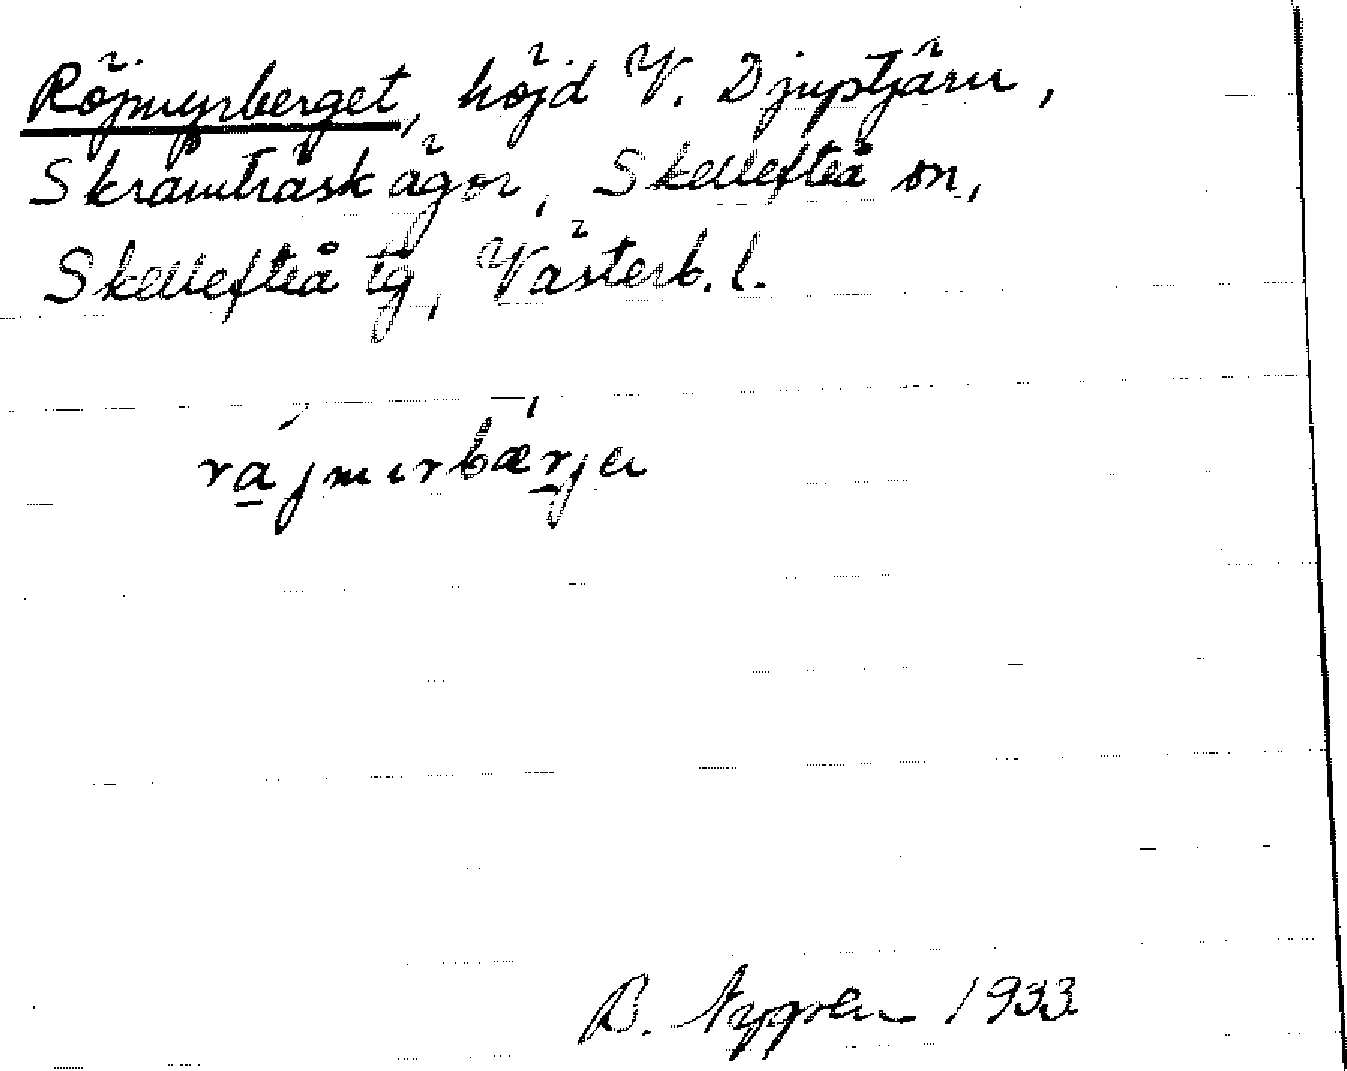 Röjmyrberget, höjd V. Djuptjärn,
Skråmträsk ägor, Skellefteå sn,
Skellefteå tg, Västerb. l.
ra̱jmırbæṟjeı
B. Nygren 1933